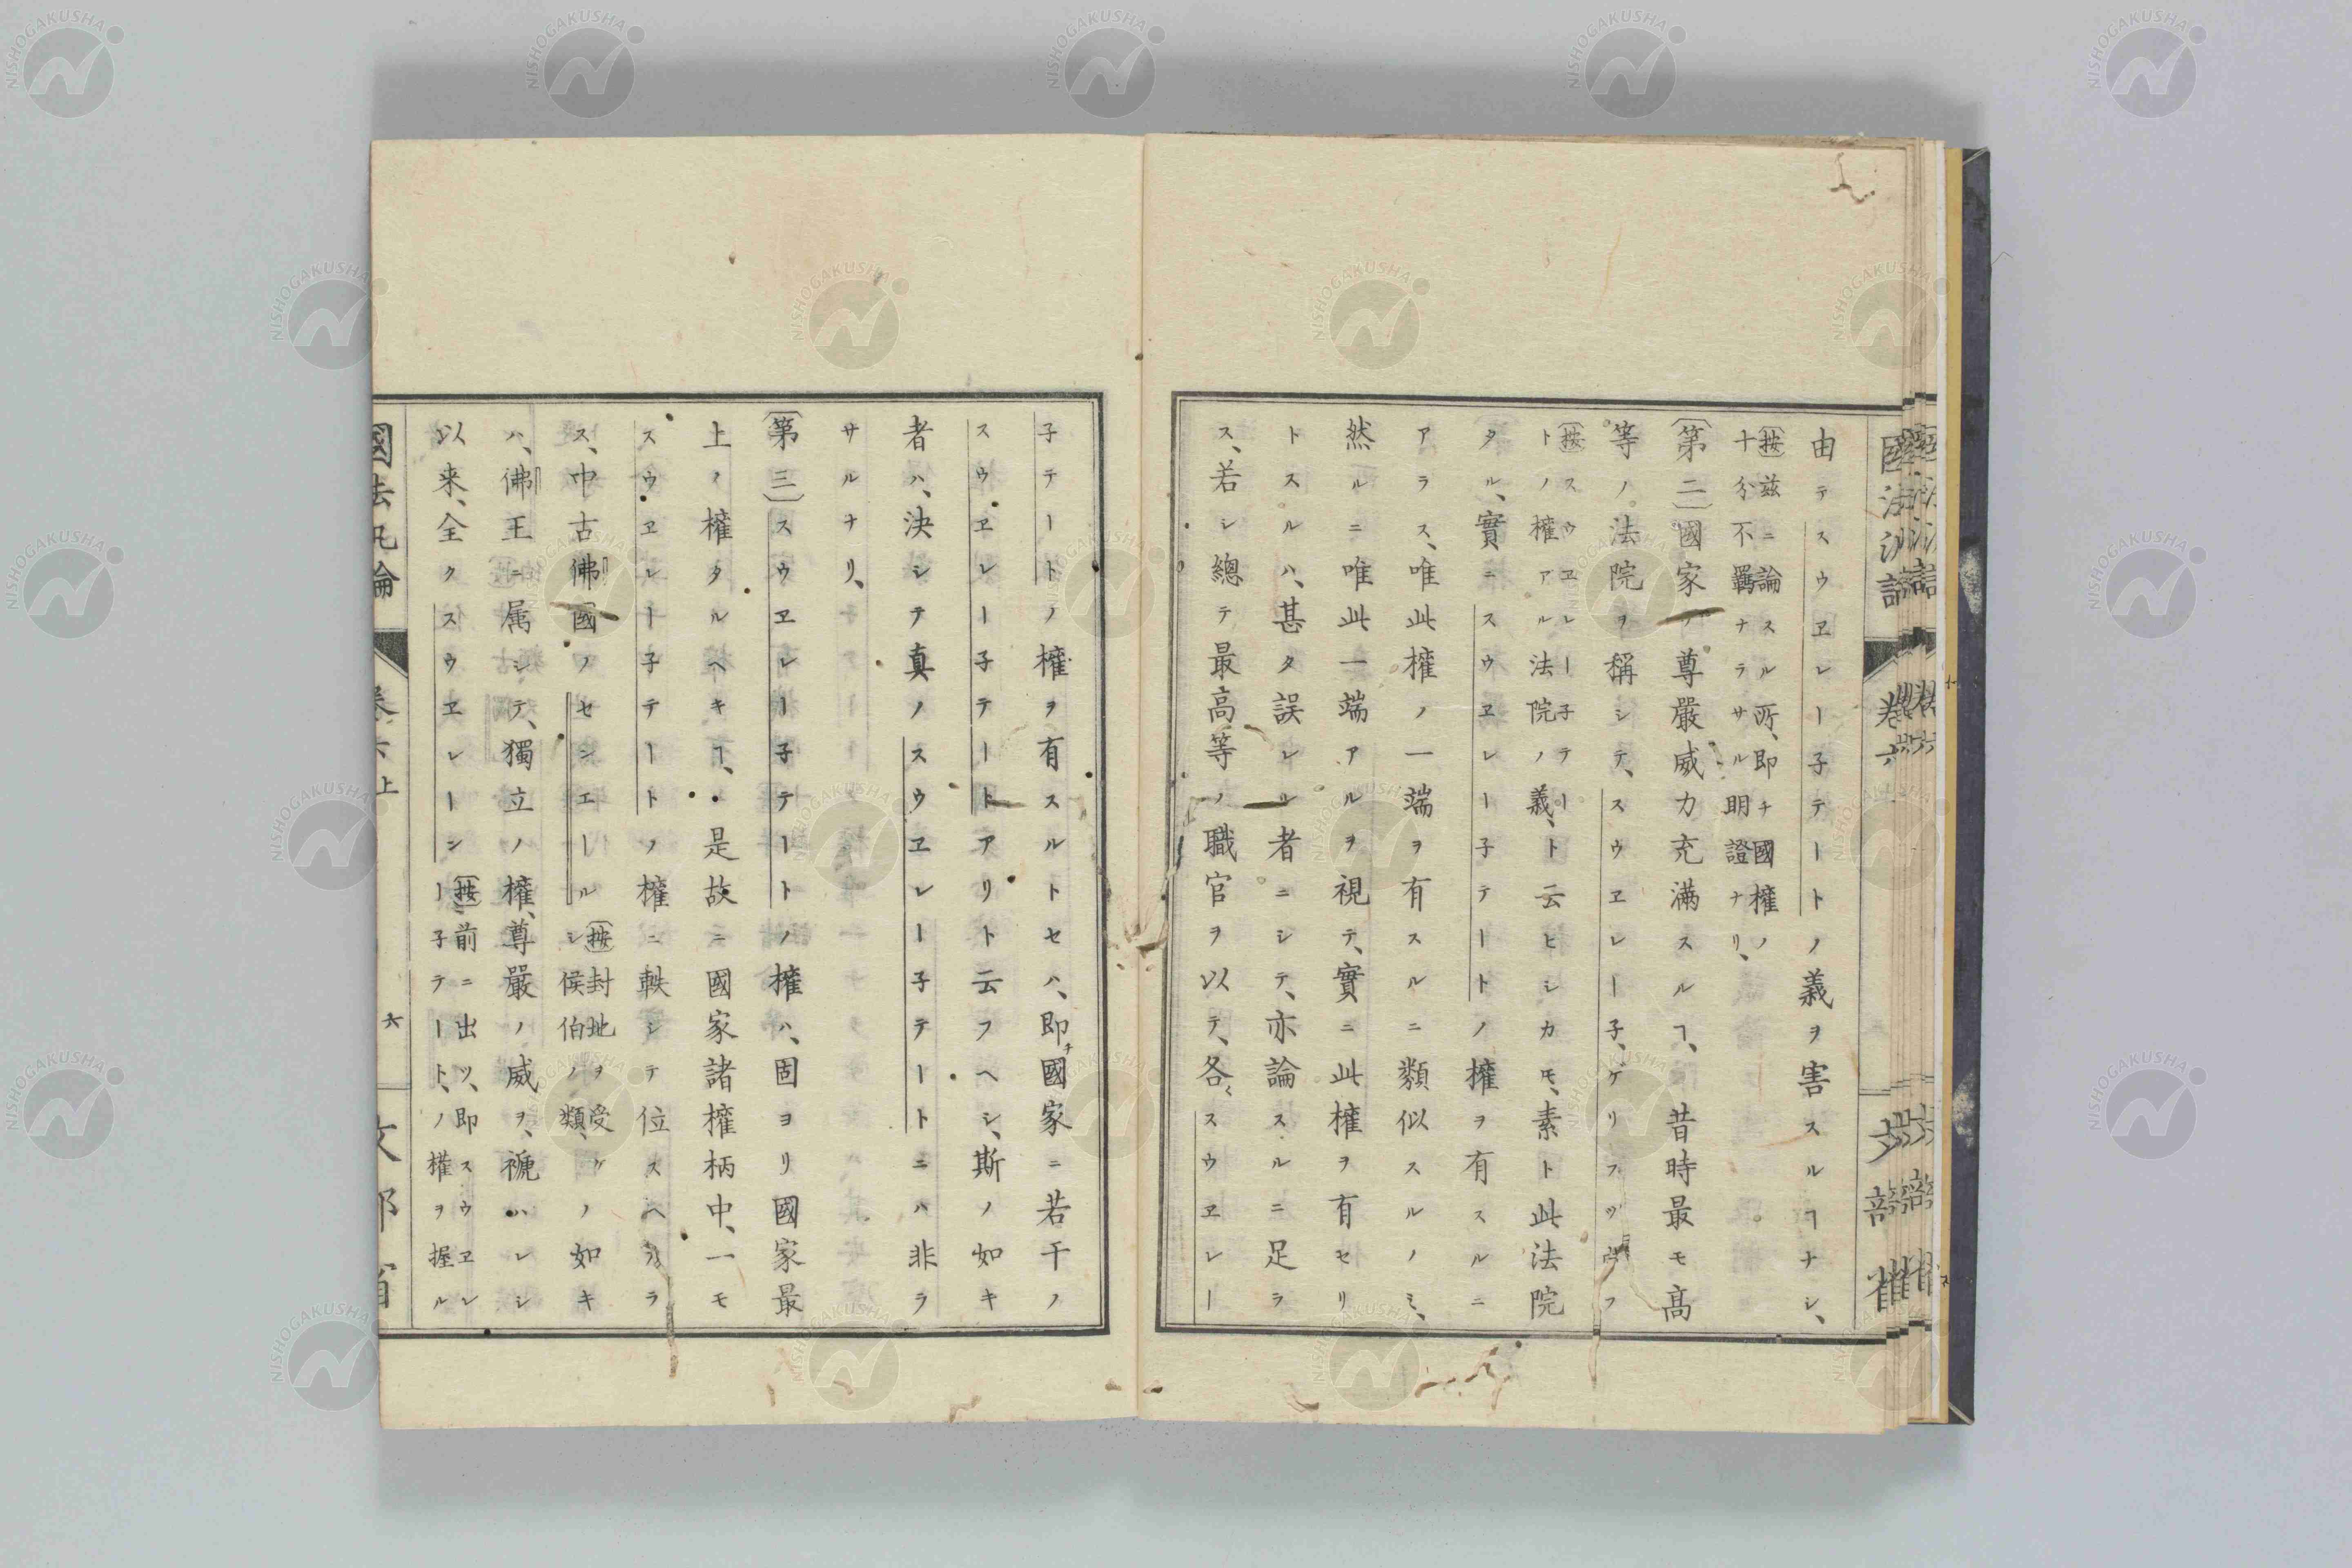 由テスウヱレー子テートノ義ヲ害スルヿナシ、
(按)茲ニ論スル所、即チ國權ノ
十分不羈ナラサル明證ナリ、
(第二)國家ノ尊嚴威力充満スルヿ、昔時最モ高
等ノ法院ヲ稱シテ、スウヱレー子、ゲリフツ
(按)スウヱレー子テー
トノ權アル法院ノ義、ト云ヒシカモ、素ト此法院
タル、實ニスウヱレー子テートノ權ヲ有スルニ
アラス、唯此權ノ一端ヲ有スルニ類似スルノミ、
然ルニ唯此一端アルヲ視テ、實ニ此權ヲ有セリ
トスルハ、甚タ誤レル者ニシテ、亦論スルニ足ラ
ス、若シ總テ最高等ノ職官ヲ以テ、各〻スウヱレー
子テートノ權ヲ有スルトセハ、即チ國家ニ若干ノ
スウヱレー子テートアリト云フヘシ、斯ノ如キ
者ハ、決シテ真ノスウヱレー子テートニハ非ラ
サルナリ、
(第三)スウヱレー子テートノ權ハ、固ヨリ國家最
上ノ權タルヘキヿ、是故ニ國家諸權柄中、一モ
スウヱレー子テートノ權ニ軼シテ位スヘカラ
ス、中古佛國ノセシエール
(按)封地ヲ受ケ
シ侯伯ノ類、ノ如キ
ハ、佛王ニ属シテ、獨立ノ權、尊嚴ノ威ヲ、褫ハレシ
以来、全クスウヱレーン
(按)前ニ出ツ、即スウヱレ
ー子テート、ノ權ヲ握ル
國法汎論
卷六上
六
文部省